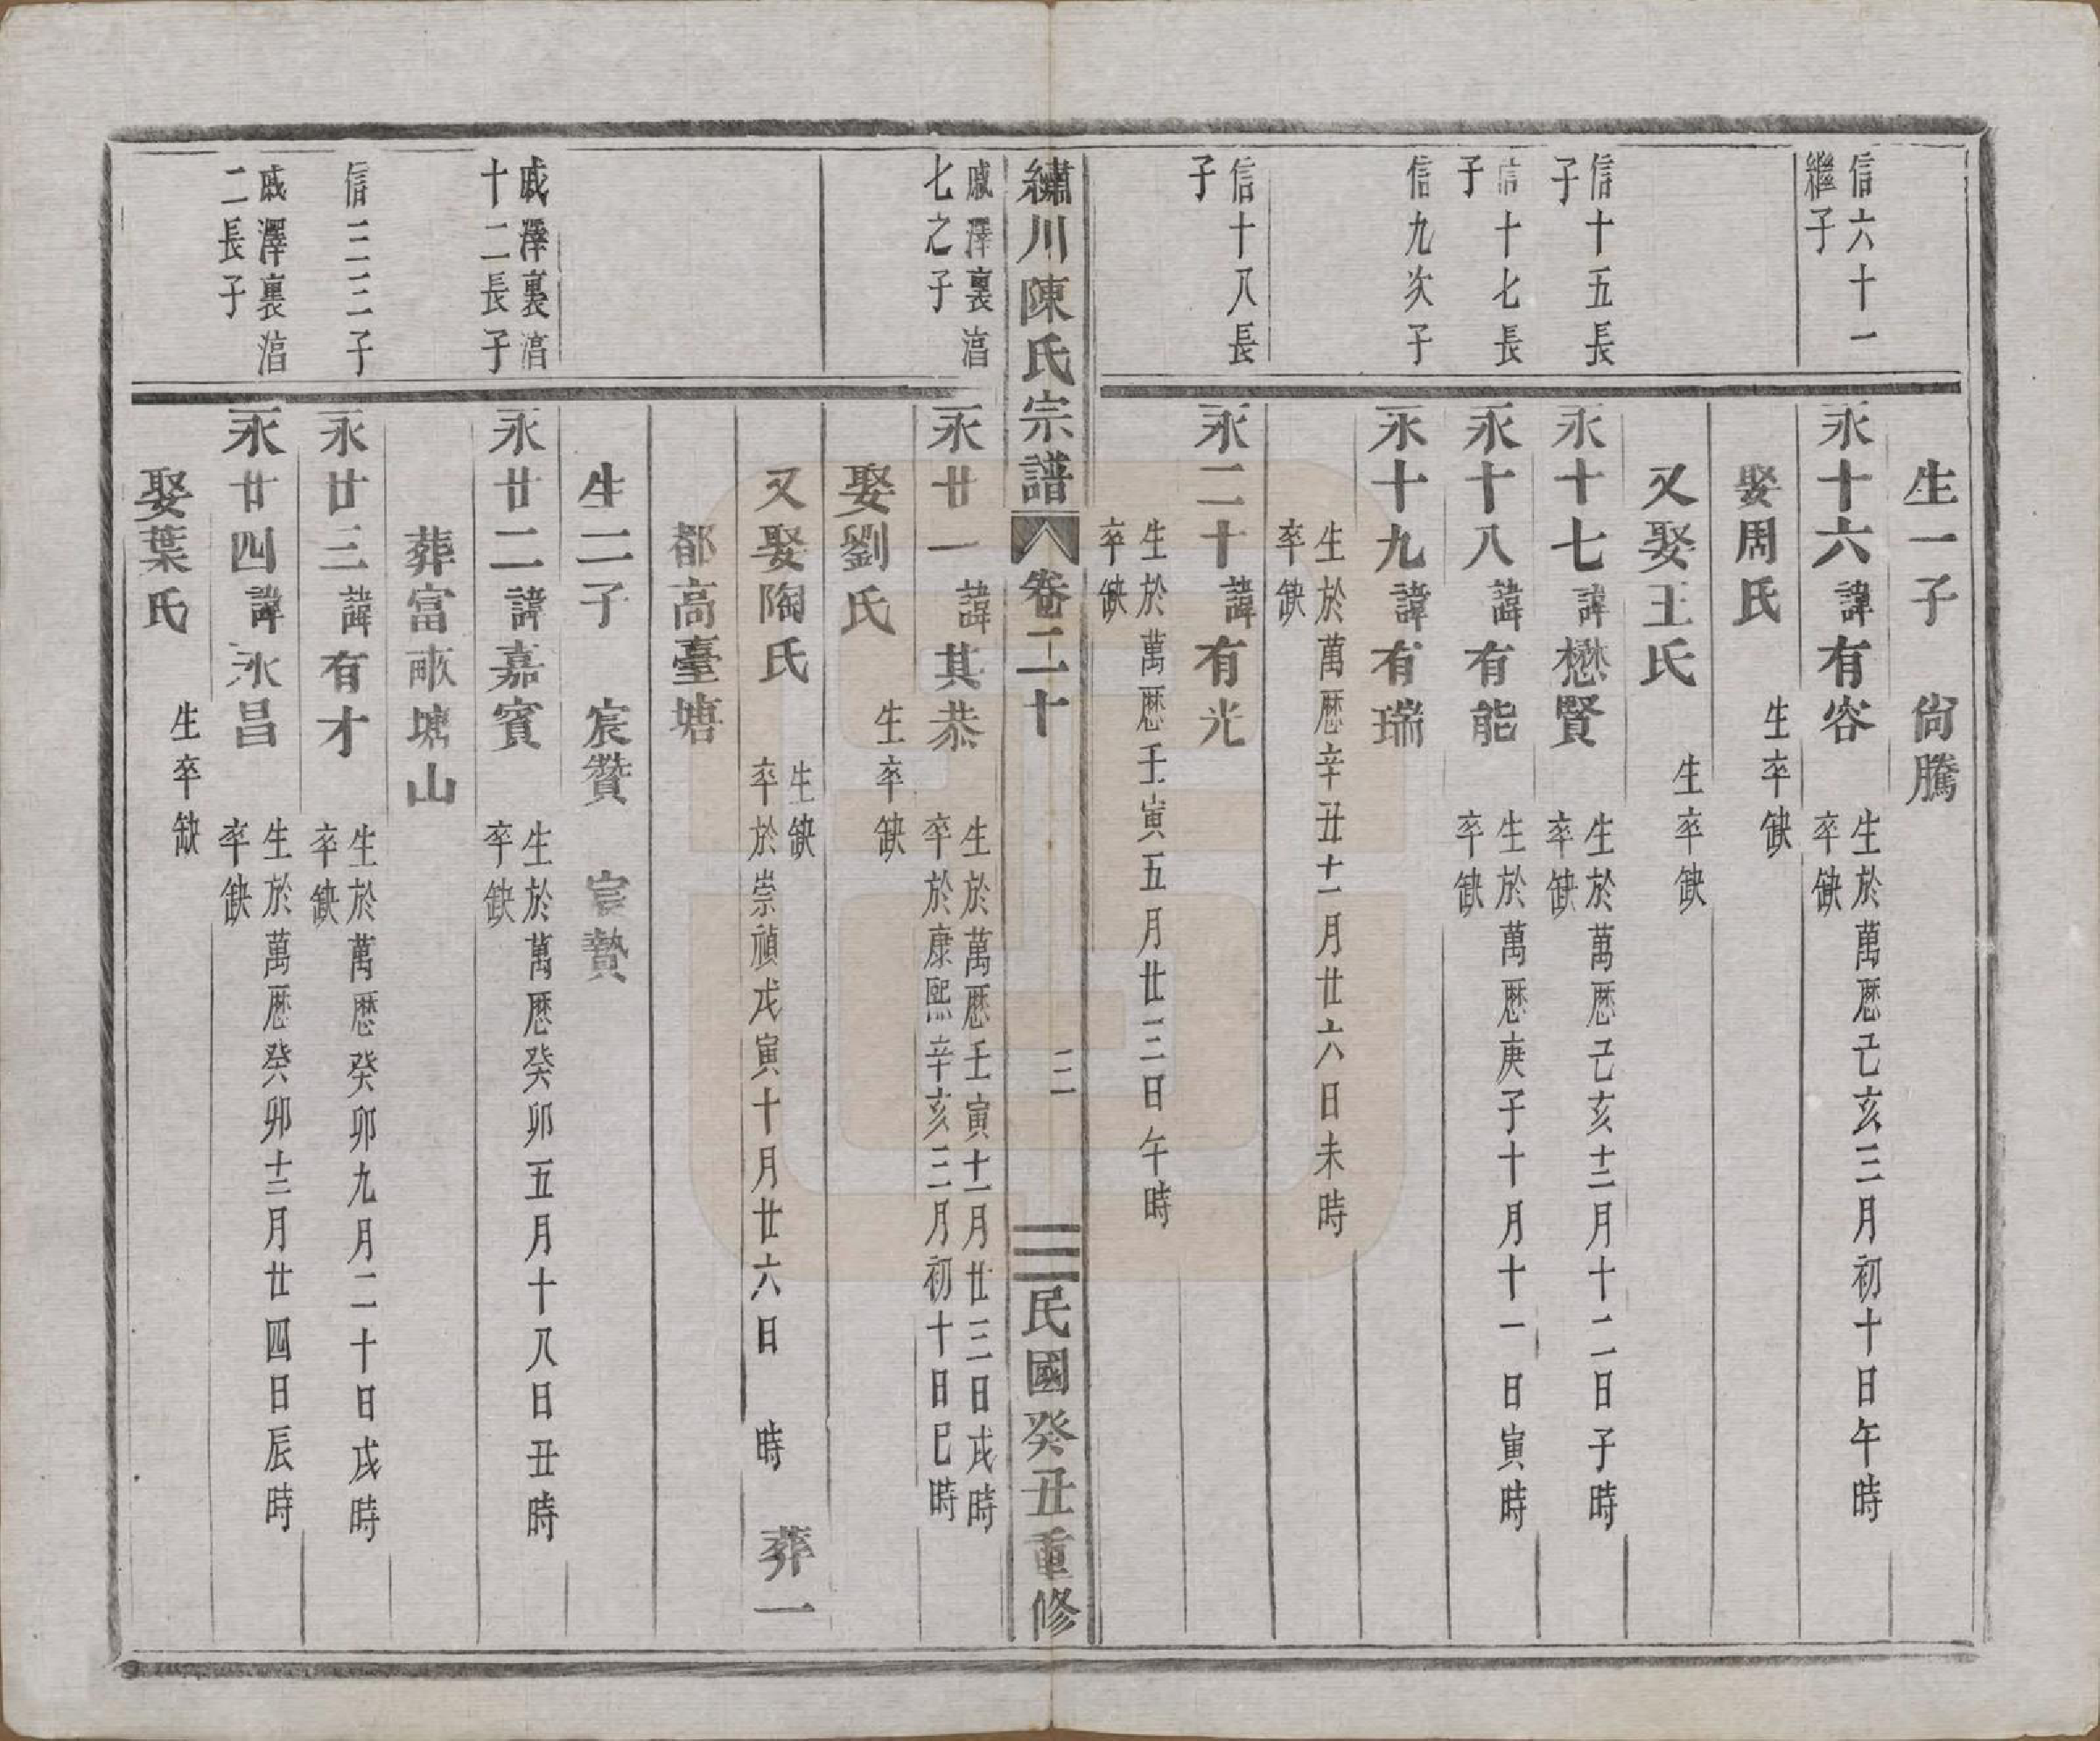 生一子　尙騰
信六十一
繼子
永十六諱有容
生於萬厯己亥三月初十日午時
卒缺
娶周氏　生卒缺
又娶王氏　生卒缺
信十五長
子
永十七諱懋賢
生於萬厯己亥十二月十二日子時
卒缺
信十七長
子
永十八諱有能
生於萬厯庚子十月十一日寅時
卒缺
信九次子
永十九諱有瑞
生於萬厯辛丑十一月廿六日未時
卒缺
信十八長
子
永二十諱有光
生於萬厯壬寅五月廿三日午時
卒缺
繡川陳氏宗譜　卷二十　二　民國癸丑重修
戚澤裏
七之子
永廿一諱其恭
生於萬厯壬寅十一月廿三日戌時
卒於康熙辛亥三月初十日巳時
娶劉氏　生卒缺
又娶陶氏
生缺
卒於崇禎戊寅十月廿六日　時
葬一
都高臺塘
生二子　宸贊　宸贄
戚澤裏
十二長子
永廿二諱嘉賓
生於萬厯癸卯五月十八日丑時
卒缺
葬富畈塘山
信三三子
永廿三諱有才
生於萬厯癸卯九月二十日戌時
卒缺
戚澤裏
二長子
永廿四諱永昌
生於萬厯癸卯十二月廿四日辰時
卒缺
娶葉氏　生卒缺